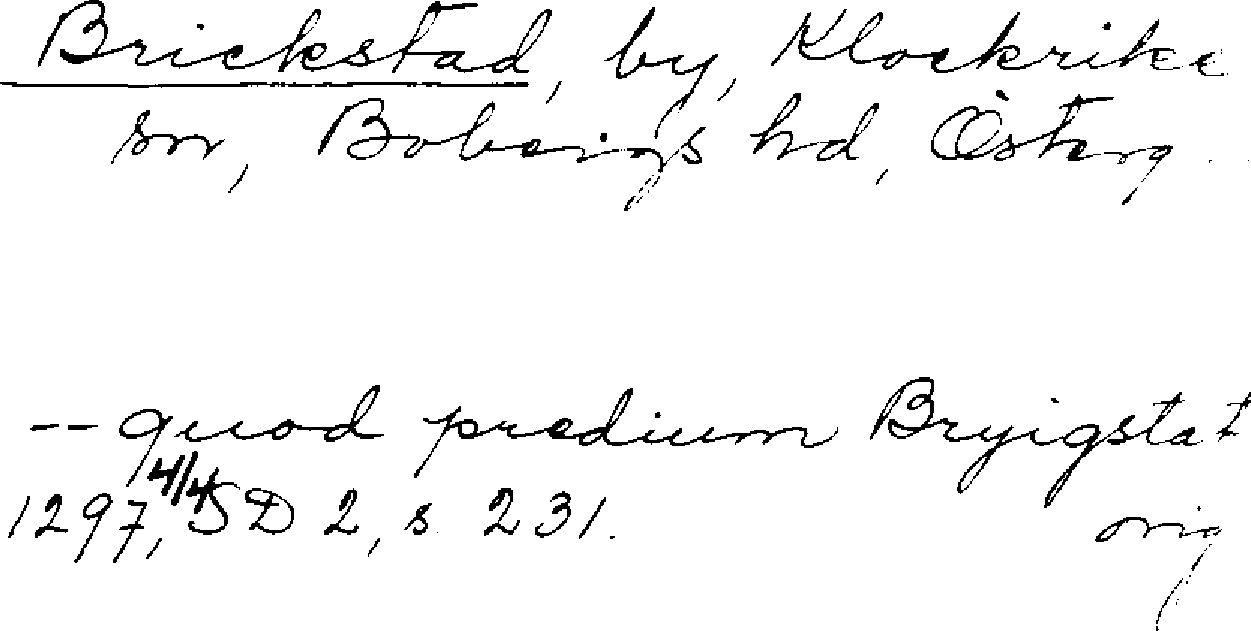 Brickstad, by, Klockrike
sn, Bobergs hd, Österg.
-- quod predium Bryigstat
1297, 4/4 SD 2, s. 231. orig